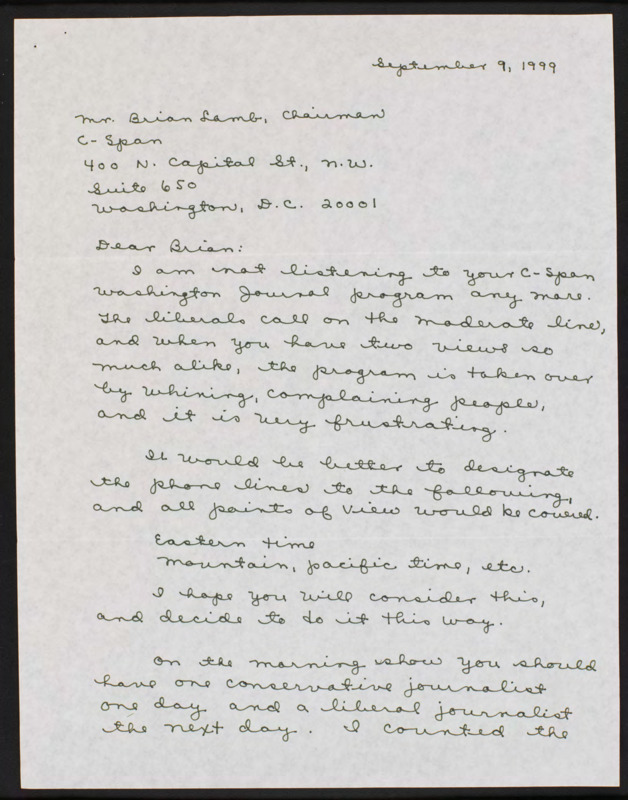 September 9, 1999
Mr. Brian Lamb, Chairman
C-Span
400 N. Capital St., N.W.
Suite 650
Washington, D.C. 20001
Dear Brian:
I am not listening to your C-Span
Washington Journal program any more.
The liberals call on the moderate line,
and when you have two views so
much alike, the program is taken over
by whining, complaining people,
and it is very frustrating.
It would be better to designate
the phone lines to the following,
and all points of view would be covered.
Eastern time
Mountain, pacific time, etc.
I hope you will consider this,
and decide to do it this way.
On the morning show you should
have one conservative journalist
one day and a liberal journalist
the next day. I counted the